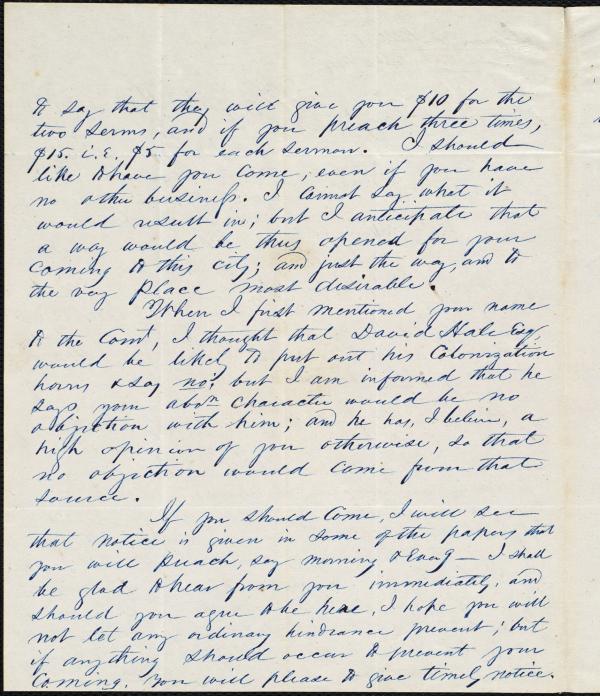 to say that they will give you $10 for the
two serms, and if you preach three times,
$15. i.e. $5 for each sermon. I should
like to have you come, even if you have
no other business. I cannot say what it
would result in; but I anticipate that
a way would be thus opened for your
coming to this city; and just the way, and to
the very place most desirable.
When I first mentioned your name
to the Comt, I thought that David Hale Esqr.
would be likely to put out his Colonization
horns & say no; but I am informed that he
says your abon character would be no
objection with him; and he has, I believe, a
high opinion of you otherwise, so that
no objection would come from that
source.
If you should come, I will see
that notice is given in some of the papers that
you will preach, say morning & Eveng — I shall
be glad to hear from you immediately, and
should you agree to be here, I hope you will
not let any ordinary hindrance prevent; but
if anything should occur to prevent your
coming, you will please to give timely notice.